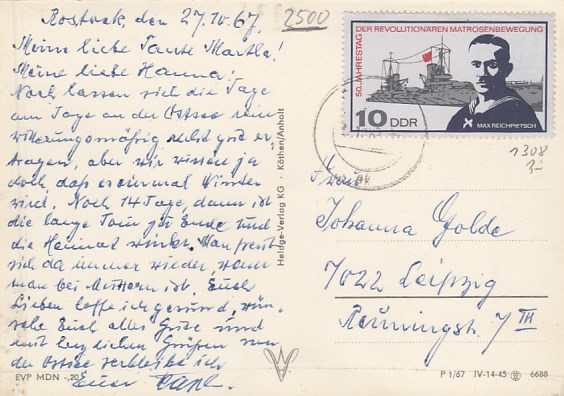 Rostock, den 27.10.67.
2500
Meine liebe Tante Martha!
Meine liebe Hanna!
Noch lassen sich die Tage
am Tage an der Ostsee rein
witterungsmäßig recht gut er-
tragen, aber wir wissen ja
doch, daß es einmal Winter
wird. Noch 14 Tage, dann ist
die lange Tour zu Ende und
die Heimat winkt. Man freut
sich da immer wieder, wenn
man bei Muttern ist. Euch
Lieben hoffe ich gesund, wün-
sche Euch alles Gute und
mit herzlichen Grüßen von
der Ostsee verbleibe ich
Euer
EVP MDN -,20
Heldge-Verlag KG · Köthen/Anhalt
50. JAHRESTAG DER REVOLUTIONÄREN MATROSENBEWEGUNG
10 DDR
MAX REICHPIETSCH
1308
Frau
Johanna Golde
7022 Leipzig
Renningstr. 7 III
P 1/67 IV-14-45 6688